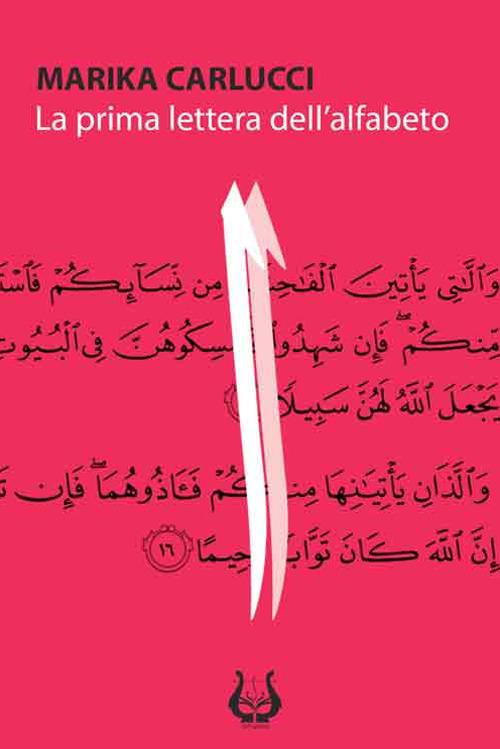 MARIKA CARLUCCI
La prima lettera dell'alfabeto
وَٱلَّٰتِى يَأْتِينَ مِن نِّسَآئِكُمْ
مِّنكُمْ ۖ فَإِن شَهِدُوا۟ فِى ٱلْبُيُوتِ
يَجْعَلَ ٱللَّهُ لَهُنَّ سَبِيلًا
وَٱلَّذَانِ يَأْتِيَٰنِهَا فَـَٔاذُوهُمَا ۖ فَإِن
إِنَّ ٱللَّهَ كَانَ ١٦